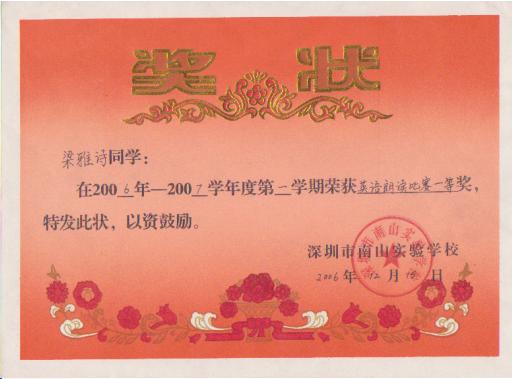 奖状
梁雅诗同学：
在2006年—2007学年度第一学期荣获英语朗读比赛一等奖，
特发此状，以资鼓励。
深圳市南山实验学校
2006年12月 日